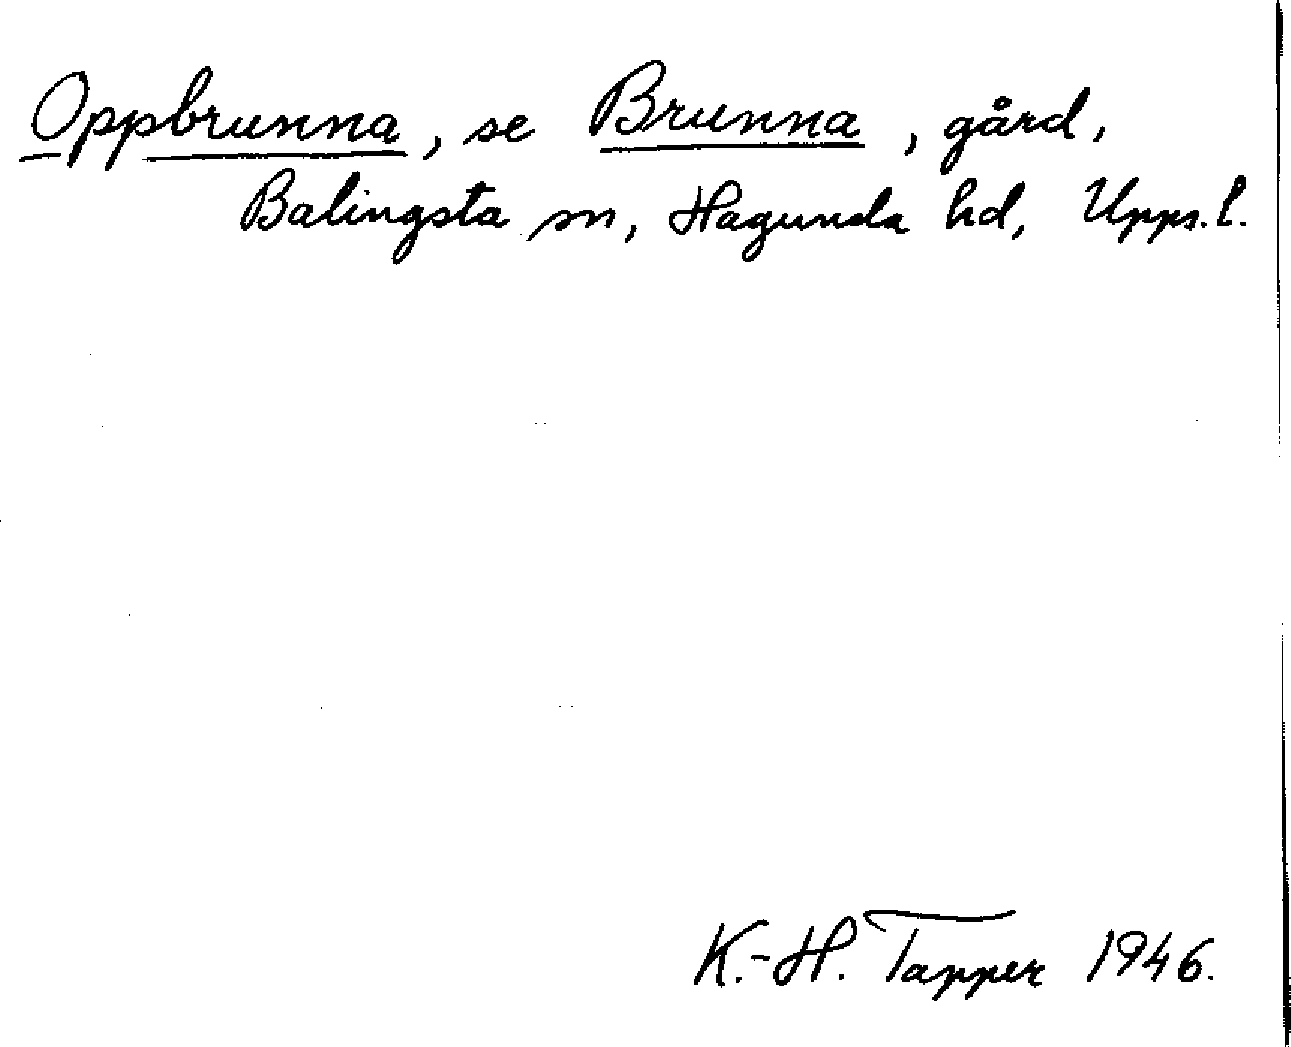 Oppbrunna, se Brunna, gård,
Balingsta sn, Hagunda hd, Upps. l.
K.-H. Tapper 1946.